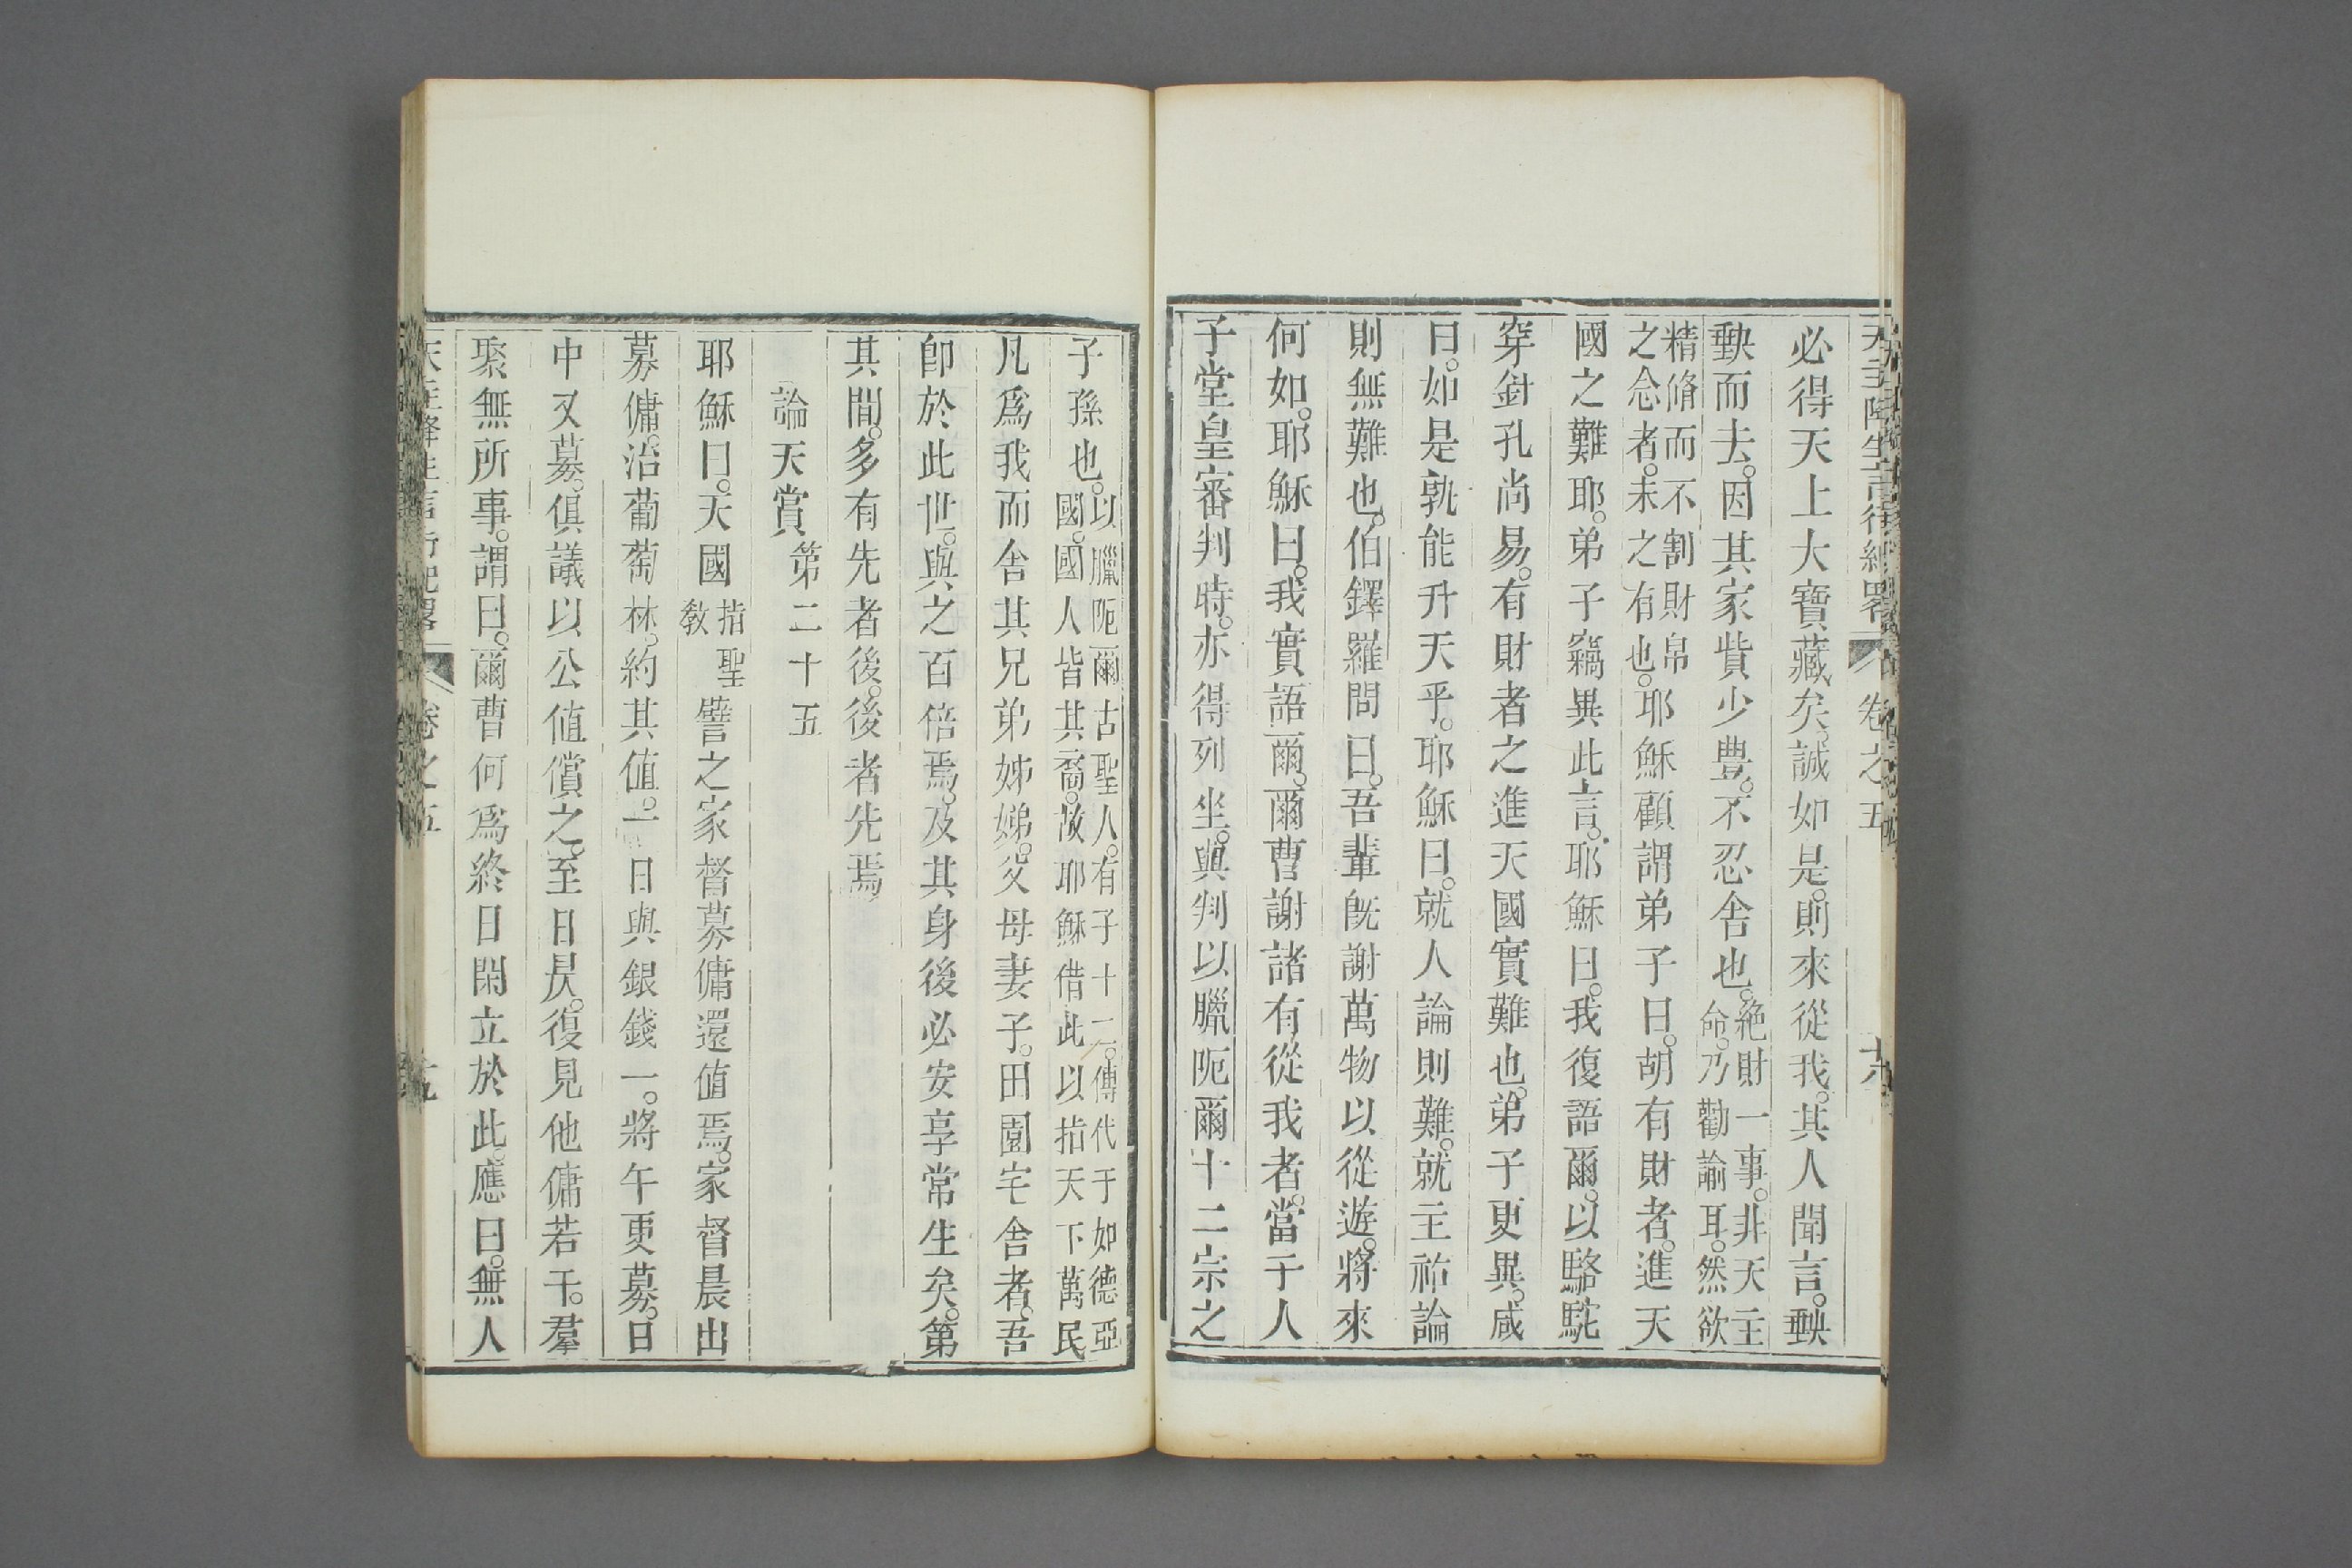 天主降生言行紀畧 卷之五 十八
必得天上大寶藏矣。誠如是。則來從我。其人聞言。軮
軮而去。因其家貲少豊。不忍舍也。
絶財一事。非天主
命。乃勸諭耳。然欲
精脩而不割財帛
之念者。未之有也。
耶穌顧謂弟子曰。胡有財者。進天
國之難耶。弟子竊異此言。耶穌曰。我復語爾。以駱駝
穿針孔尚易。有財者之進天國實難也。弟子更異。咸
曰。如是孰能升天乎。耶穌曰。就人論則難。就主祐論
則無難也。伯鐸羅問曰。吾輩旣謝萬物以從遊。將來
何如。耶穌曰。我實語爾。爾曹謝諸有從我者。當于人
子堂皇審判時。亦得列坐。與判以臘阨爾十二宗之
子孫也。
以臘阨爾古聖人。有子十二。傳代于如德亞
國。國人皆其裔。故耶穌借此以指天下萬民
凡爲我而舍其兄弟姊娣。父母妻子。田園宅舍者。吾
卽於此世。與之百倍焉。及其身後必安享常生矣。第
其間。多有先者後。後者先焉
論天賞 第二十五
耶穌曰。天國
指聖
敎
譬之家督募傭還值焉。家督晨出
募傭。治葡萄林。約其值。一日與銀錢一。將午更募。日
中又募。俱議以公值償之。至日昃。復見他傭若干。羣
聚無所事。謂曰。爾曹何爲終日閑立於此。應曰。無人
天主降生言行紀畧 卷之五 十九